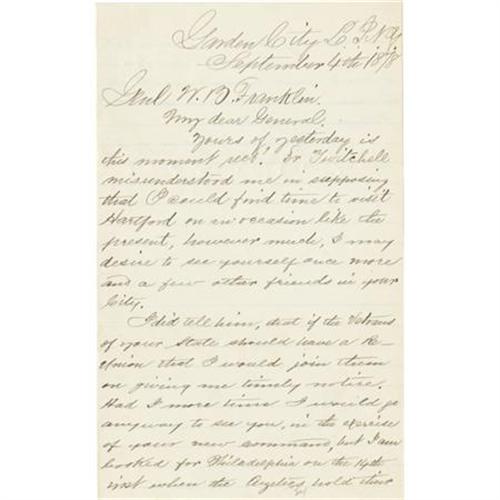 Garden City L. I. N.Y.
September 4th 1878
Genl W. B. Franklin.
My dear General.
Yours of yesterday is
this moment recd. Dr. Twitchell
misunderstood me in supposing
that I could find time to visit
Hartford on an occasion like the
present, however much, I may
desire to see yourself once more
and a few other friends in your
City.
I did tell him, that if the Vetrans
of your State should have a Re-
Union that I would join them
on giving me timely notice.
Had I more time I would go
anyway to see you, in the exercise
of your new command, but I am
booked for Philadelphia on the 14th
inst when the hold their